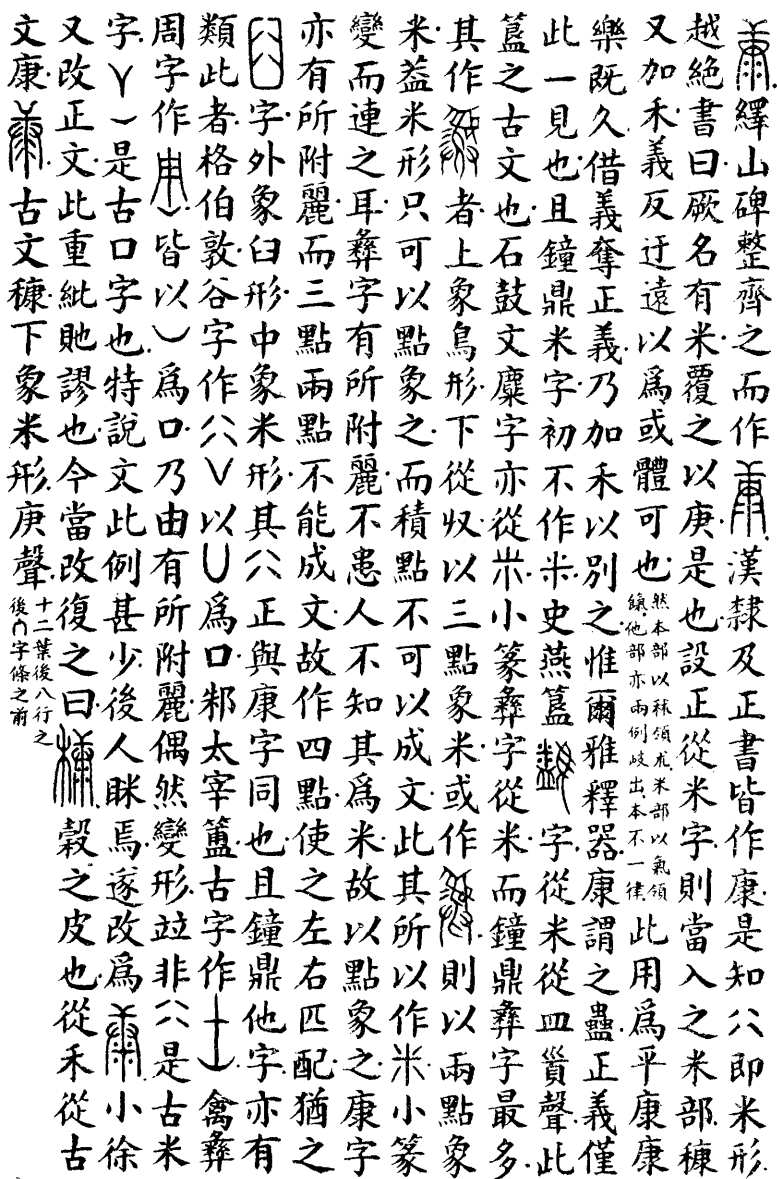 繹山碑整齊之而作漢隸及正書皆作康是知八即米形
越絕書曰厥名有米覆之以庚是也設正從米字則當入之米部穅
又加禾義反迂遠以爲或體可也然本部以秫領朮米部以氣領餼他部亦兩例歧出本不一律此用爲平康康
樂既久借義奪正義乃加禾以別之惟爾雅釋器康謂之蠱正義僅
此一見也且鐘鼎米字初不作米史燕簠字從米從皿貲聲此
簠之古文也石鼓文麋字亦從米小篆彝字從米而鐘鼎彝字最多
其作者上象鳥形下從収以三點象米或作則以兩點象
米葢米形只可以點象之而積點不可以成文此其所以作米小篆
變而連之耳彝字有所附麗不患人不知其爲米故以點象之康字
亦有所附麗而三點兩點不能成文故作四點使之左右匹配猶之
字外象臼形中象米形其八正與康字同也且鐘鼎他字亦有
類此者格伯敦谷字作以爲口邾太宰簠古字作禽彝
周字作皆以爲口乃由有所附麗偶然變形竝非八是古米
字是古口字也特說文此例甚少後人眯焉遂改爲小徐
又改正文此重紕貤謬也今當改復之曰穀之皮也從禾從古
文康古文穅下象米形庚聲十二葉後八行之後字條之前